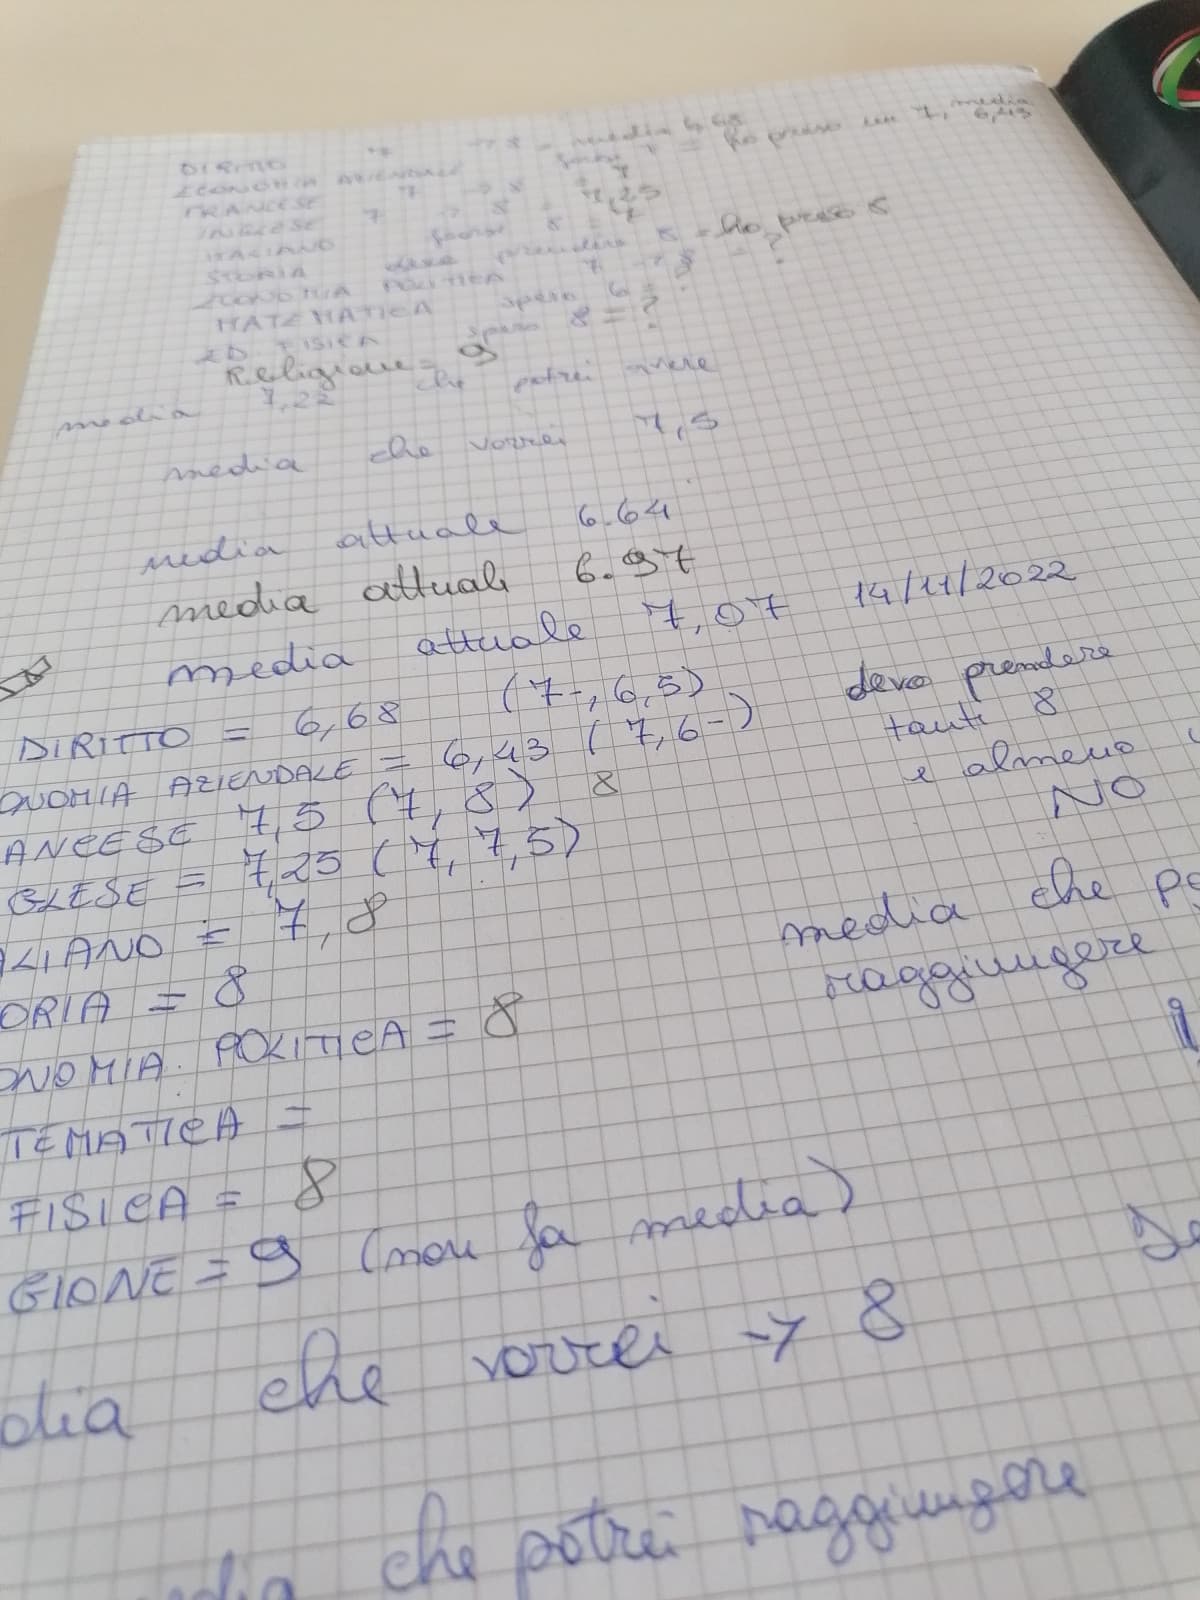 DIRITTO 7 -> 8 = media 6,68
ECONOMIA AZIENDALE forse 7 = ho preso un 7, media 6,43
FRANCESE 7 -> 8 = 7
INGLESE 7 -> 8 = 7,25
ITALIANO forse 8 = 7
STORIA devo prendere 8 = ho preso 8
ECONOMIA POLITICA 7 -> 8 = ?
MATEMATICA spero 6 = ?
ED FISICA spero 8 = ?
Religione = 9
media 7,22 che potrei avere
media che vorrei 7,5
media attuale 6.64
media attuale 6.97
media attuale 7,07 14/11/2022
DIRITTO = 6,68 (7-, 6,5) devo prendere
ONOMIA AZIENDALE = 6,43 (7, 6-) tanti 8
ANCESE 7,5 (7, 8) 8 e almeno
GLESE = 7,25 (7, 7,5) NO
ALIANO = 7, 8
ORIA = 8 media che
ONOMIA POLITICA = 8 raggiungere
TEMATICA =
FISICA = 8
GIONE = 9 (non fa media)
dia che vorrei -> 8
media che potrei raggiungere